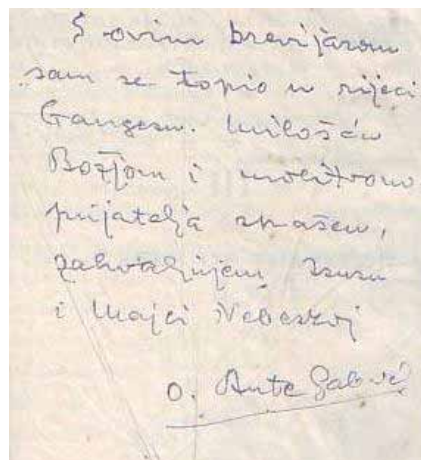 S ovim brevijarom
sam se topio u rijeci
Gangesu. Milošću
Božjom i molitvom
prijatelja spašen,
zahvaljujem Isusu
i Majci Nebeskoj
o. Ante Gabrić